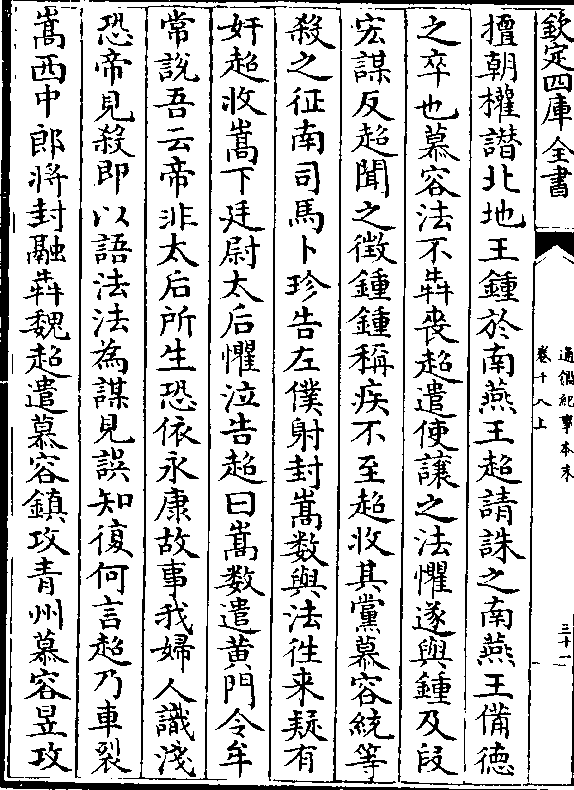 欽定四庫全書
通鑑紀事本末
卷十八上
三十一
擅朝權譖北地王鍾於南燕王超請誅之南燕王備德
之卒也慕容法不犇喪超遣使讓之法懼遂與鍾及段
宏謀反超聞之徵鍾鍾稱疾不至超收其黨慕容統等
殺之征南司馬卜珍告左僕射封嵩数與法徃来疑有
奸超收嵩下廷尉太后懼泣告超曰嵩数遣黄門令牟
常說吾云帝非太后所生恐依永康故事我婦人識淺
恐帝見殺即以語法法為謀見誤知復何言超乃車裂
嵩西中郎將封融犇魏超遣慕容鎮攻青州慕容昱攻